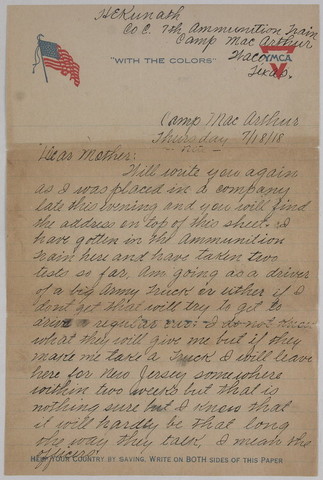 HCKunash
Co C. 7th Ammunition Train
Camp Mac Arthur
"WITH THE COLORS"
Waco
YMCA
Texas.
Camp Mac Arthur
Thursday 7/18/18
Dear Mother:
Will write you again
as I was placed in a company
late this evening and you will find
the address on top of this sheet. I
have gotten in the Ammunition
train here and have taken two
tests so far, am going as a driver
of a big Army truck or either if I
don't get that will try to get to
drive regular I do not know
what they will give me but if they
make me take a Truck, I will leave
here for New Jersey somewhere
within two weeks but that is
nothing sure but I know that
it will hardly be that long
the way they talk, I mean the
officers.
HELP YOUR COUNTRY BY SAVING. WRITE ON BOTH SIDES OF THIS PAPER